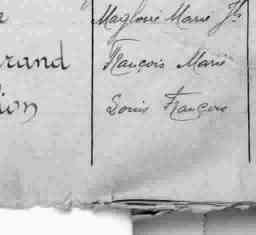 Magloire Marie Jh
rand François Marie
ion Louis François